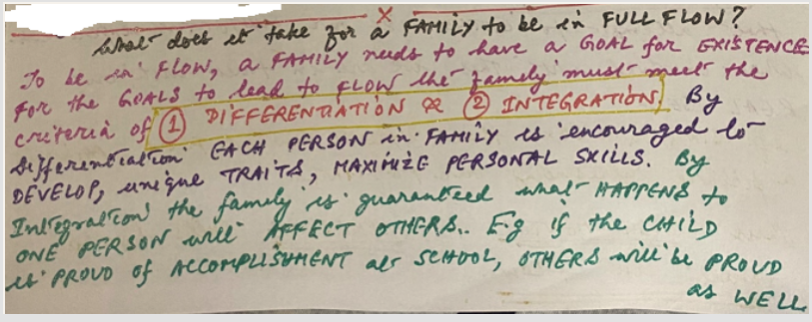 What does it take for a FAMILY to be in FULL FLOW?
To be in FLOW, a FAMILY needs to have a GOAL for EXISTENCE
For the GOALS to lead to FLOW the family must meet the
criteria of ① DIFFERENTIATION & ② INTEGRATION. By
differentiation EACH PERSON in FAMILY is encouraged to
DEVELOP, unique TRAITS, MAXIMIZE PERSONAL SKILLS. By
Integration the family is guaranteed what HAPPENS to
ONE PERSON will AFFECT OTHERS.. E.g if the CHILD
is PROUD of ACCOMPLISHMENT at SCHOOL, OTHERS will be PROUD
as WELL